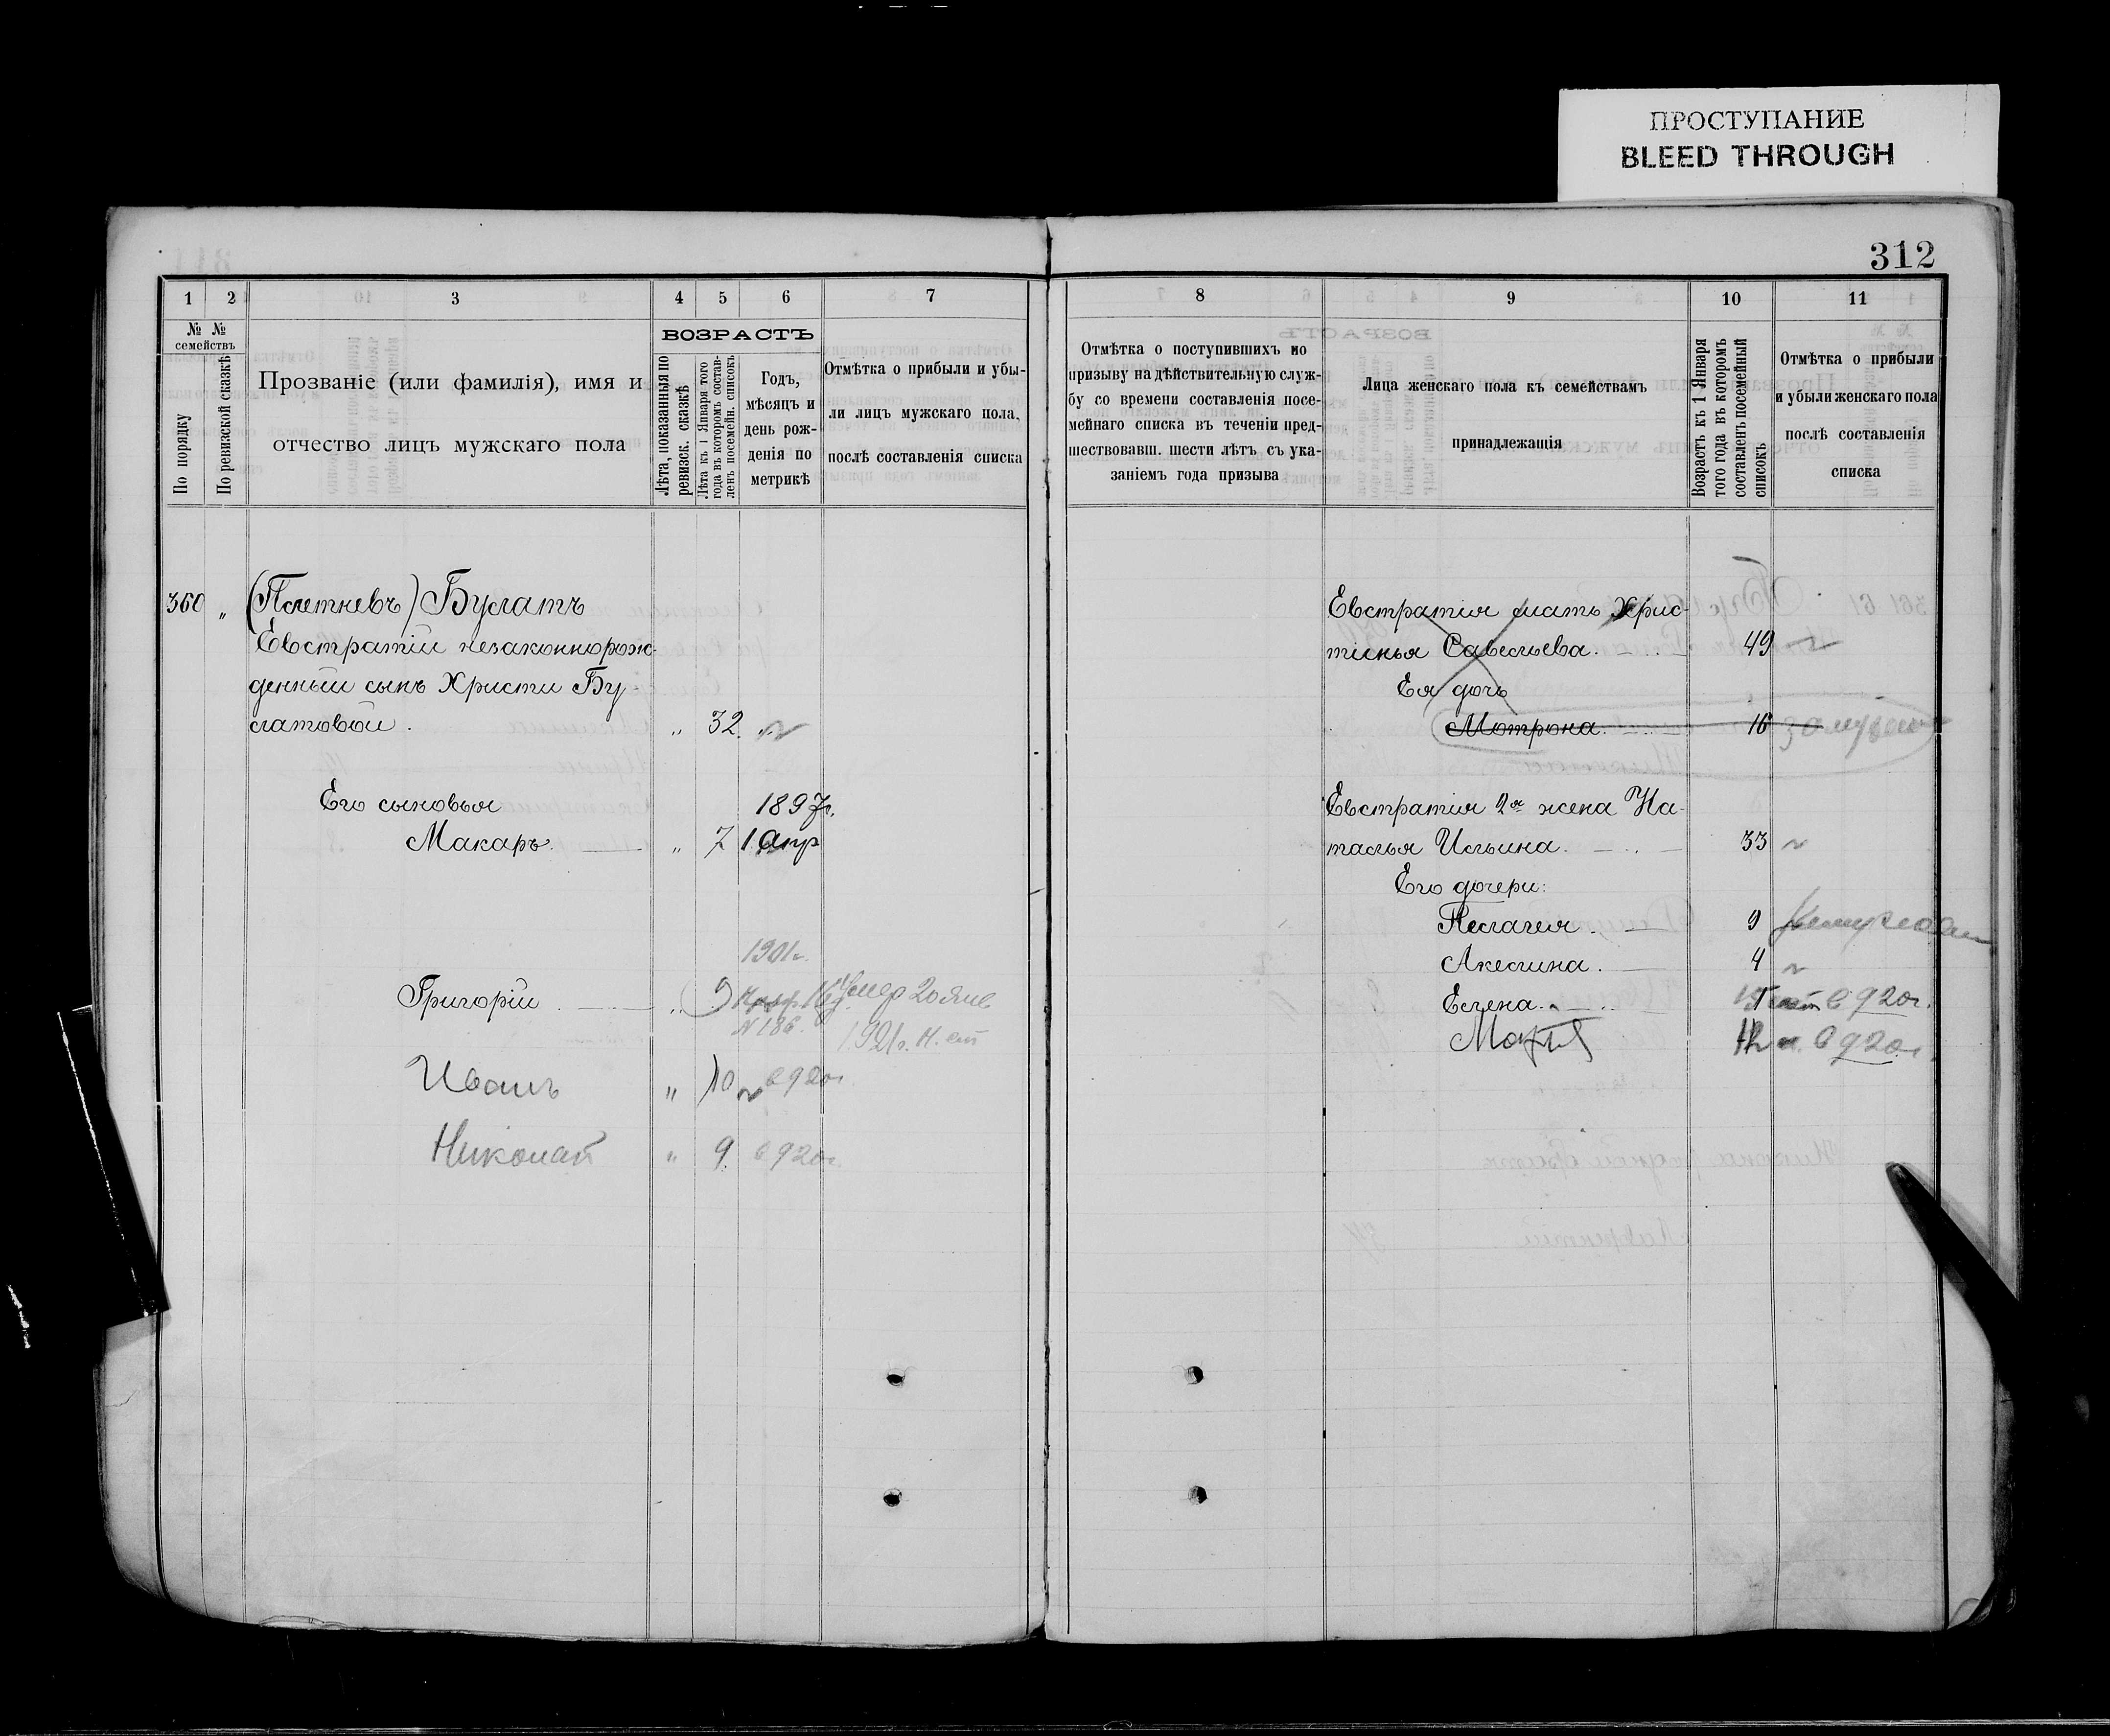 ПРОСТУПАНИЕ
BLEED THROUGH
312
1 2 3 4 5 6 7
№ № семействъ
По порядку
По ревизской сказкѣ
Прозваніе (или фамилія), имя и
отчество лицъ мужскаго пола
ВОЗРАСТЪ
Лѣта, показанныя по
ревизск. сказкѣ
Лѣта къ 1 Января того
года въ которомъ состав-
ленъ посемейн. списокъ
Годъ,
мѣсяцъ и
день рож-
денія по
метрикѣ
Отмѣтка о прибыли и убы-
ли лицъ мужскаго пола,
послѣ составленія списка
360 „ (Плетневъ) Буслатъ
Евстратій незаконнорож-
денный сынъ Христи Бу-
слатовой. „ 32.
Его сыновья 1897г.
Макаръ. „ 7 1 апр
1901г.
Григорій „ 9
Умер 20 янв
N 186.
1921г. н. ст
Иванъ „ 10 в 920г.
Николай „ 9. в 920г.
8 9 10 11
Отмѣтка о поступившихъ по
призыву на дѣйствительную служ-
бу со времени составленія посе-
мейнаго списка въ теченіи пред-
шествовавш. шести лѣтъ съ ука-
заніемъ года призыва
Лица женскаго пола къ семействамъ
принадлежащія
Возрастъ къ 1 Января
того года въ которомъ
составленъ посемейный
списокъ
Отмѣтка о прибыли
и убыли женскаго пола
послѣ составленія
списка
Евстратія мать Хрис-
тинья Савельева. 49
Ея дочь
Мотрона. 16 замужем
Евстратія 2я жена На-
талья Ильина. 33
Его дочери:
Пелагея. 9
Акелина. 4
Елена. в 920г.
12 в 920г.